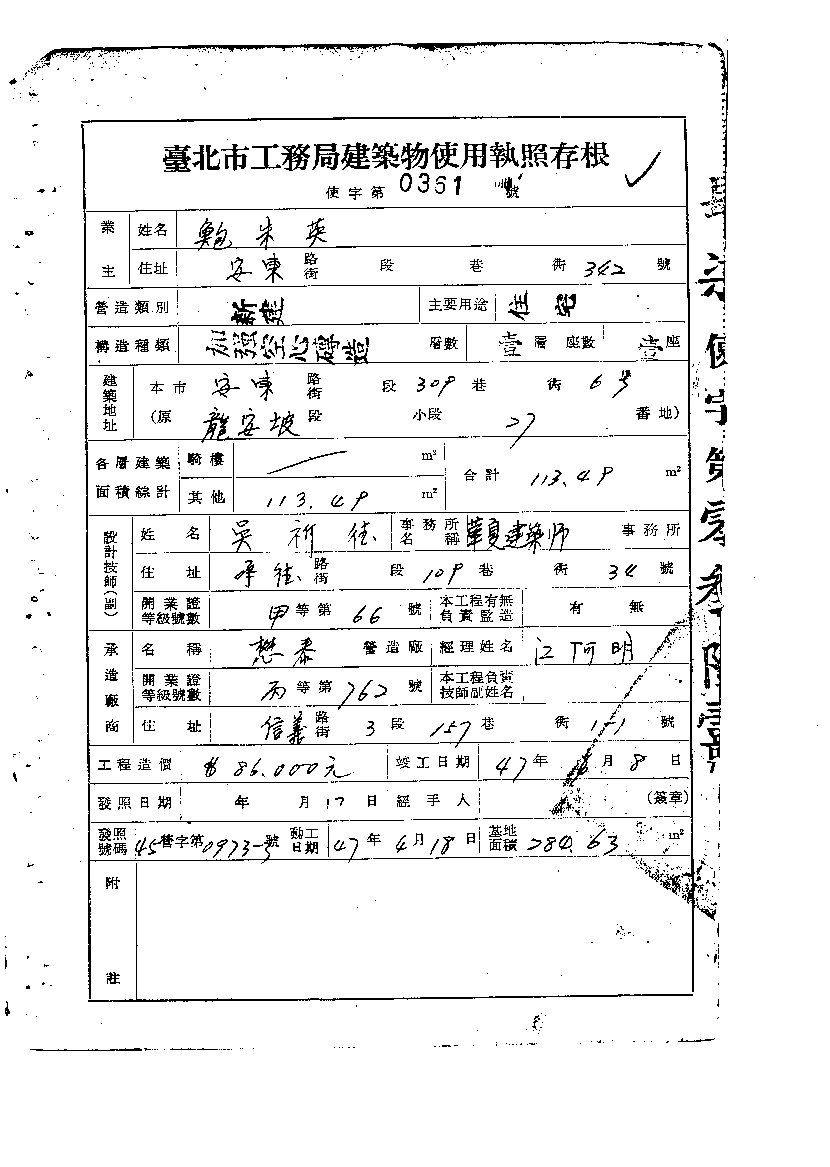 臺北市工務局建築物使用執照存根
使字第 0361 號
業主 姓名 鮑朱英
住址 安東 路街 段 巷 衖 342 號
營造類別 新建 主要用途 住宅
構造種類 加強空心磚造 層數 壹 層 座數 壹 座
建築地址 本市 安東 路街 段 309 巷 衖 6号
(原 龍安坡 段 小段 27 番地)
各層建築面積綜計 騎樓 m² 合計 113.49 m²
其他 113.49 m²
設計技師(副) 姓名 吳祈德 事務所名稱 華夏建築师 事務所
住址 承德 路街 段 109 巷 衖 34 號
開業證等級號數 甲等第 66 號 本工程有無負責監造 有 無
承造廠商 名稱 懋泰 營造廠 經理姓名 江阿明
開業證等級號數 丙等第 762 號 本工程負責技師副姓名
住址 信義 路街 3 段 157 巷 衖 1-1 號
工程造價 $ 86.000元 竣工日期 47 年 月 8 日
發照日期 年 月 17 日 經手人 (簽章)
發照號碼 45營字第0973-3號 動工日期 47年4月18日 基地面積 284.63 m²
附註
使字第零叁